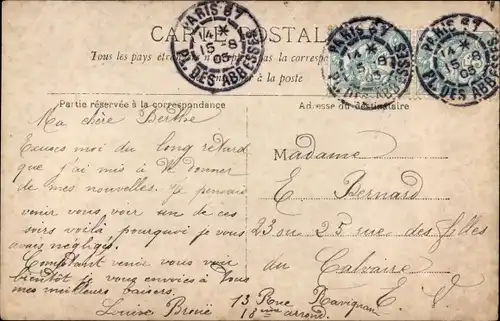 CARTE POSTALE
Tous les pays étrangers n'acceptent pas la correspondance
à la poste
PARIS 67
14 *
15-8
05
PL. DES ABBESSES
PARIS 67
14 *
15-8
05
PL. DES ABBESSES
PARIS 67
14 *
15-8
05
PL. DES ABBESSES
Partie réservée à la correspondance
Adresse du destinataire
Ma chère Berthe
Excuses moi du long retard
que j'ai mis à te donner
de mes nouvelles. Je pensais
venir vous voir un de ces
soirs voilà, pourquoi je vous
avais négligés.
Comptant venir vous voir
bientôt je vous envoies à Vous
mes meilleurs baisers.
Louise Broué
13 Rue Ravignan
18ème arrond.
Madame
E. Bernard
23 ou 25 rue des filles
du Calvaire
E. V.